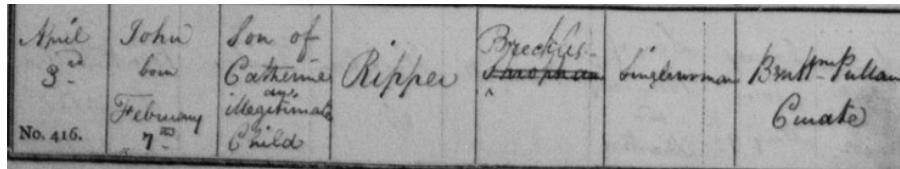 April
3rd
No. 416.
John
born
February
7th
Son of
Catherine
an
illegitimate
Child
Ripper
Singlewoman
Pullan
Curate